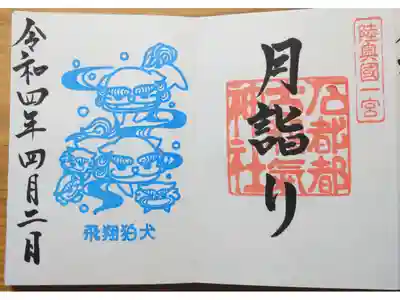 陸奥國一宮
月詣り
石都都
古和氣
神社
飛翔狛犬
令和四年四月二日